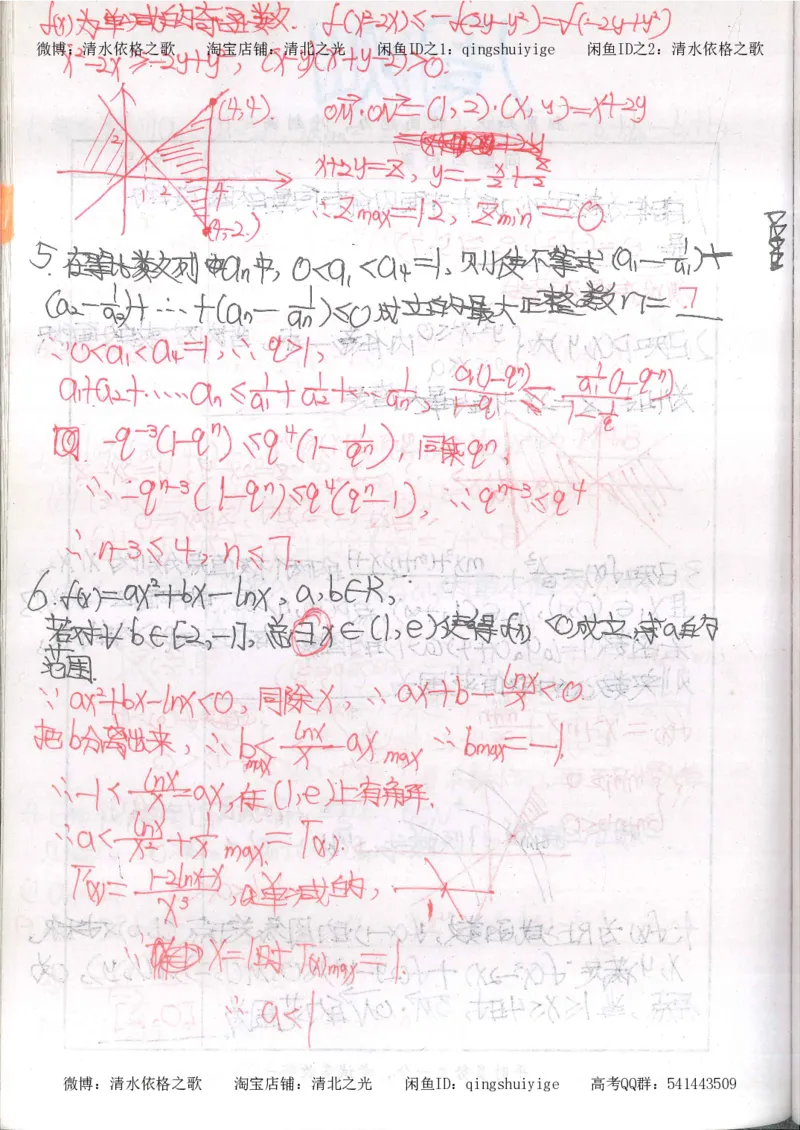 f(x)为单减的奇函数. f(x²-2x)≤-f(2y-y²)=f(-2y+y²)
微博：清水依格之歌 淘宝店铺：清北之光 闲鱼ID之1：qingshuiyige 闲鱼ID之2：清水依格之歌
x²-2x≥-2y+y², (x-y)(x+y-2)≥0.
(4,4) OM·ON=(1,2)·(x,y)=x+2y
x+2y=z, y=-x/2+z/2
2 1 2 4
(4,-2) ∴Zmax=12, Zmin=0
5. 在等比数列中an中, 0<a₁<a₄=1, 则使不等式(a₁-1/a₁)+
(a₂-1/a₂)+…+(an-1/an)≤0成立的最大正整数n=7
∵0<a₁<a₄=1, ∴q>1,
a₁+a₂+……an≤1/a₁+1/a₂+…1/an, a₁(1-qⁿ)/1-q ≤ 1/a₁(1-q⁻ⁿ)/1-1/q
q⁻³(1-qⁿ)≤q⁴(1-1/qⁿ), 同乘qⁿ,
∴-qⁿ⁻³(1-qⁿ)≤q⁴(qⁿ-1), ∴qⁿ⁻³≤q⁴
∴n-3≤4, n≤7
6. f(x)=ax²+bx-lnx, a,b∈R,
若对∀b∈[-2,-1], 总∃x∈(1,e)使得f(x)<0成立, 求a的
范围.
∵ax²+bx-lnx<0, 同除x, ∴ax+b-lnx/x<0
把b分离出来, ∴b max<lnx/x-ax max ∵bmax=-1,
∴-1<lnx/x-ax, 在(1,e)上有解.
∴a<lnx/x²+1/x max=T(x).
T'(x)=1-2lnx-x/x³, 单减的,
1
∴x=1时T(x)max=1.
∴a<1
微博：清水依格之歌 淘宝店铺：清北之光 闲鱼ID：qingshuiyige 高考QQ群：541443509